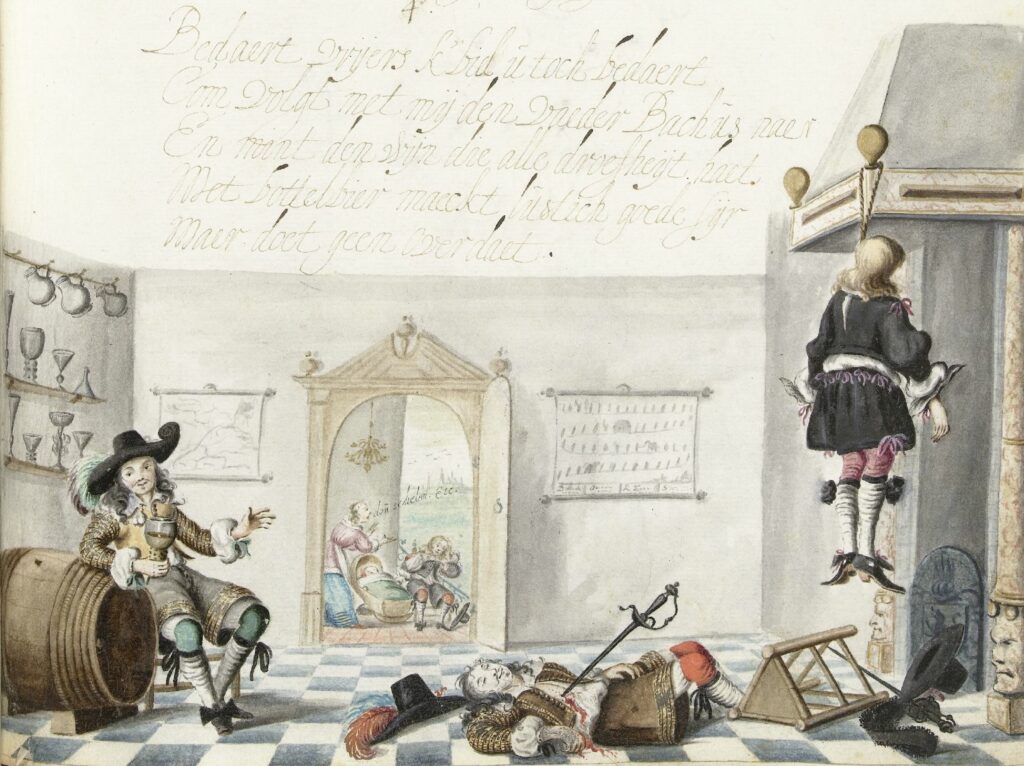 Bedaert vrijers k'bid u toch bedaert
Com volgt met mij den vaeder Bachus naer
En mint den wijn die alle droefheijt haet
Met bottelbier maeckt lustich goede sijr
Maer doet geen overdaet.